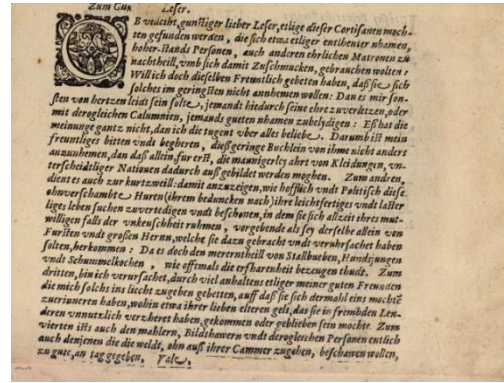 Zum Gün Leser.
OB vileicht, günstiger lieber Leser, etlige dieser Cortisanen moch-
ten gefunden werden, die sich etwa etliger entlhenter nhamen,
hoher-stands Personen, auch anderen ehrlichen Matronen zu
nachtheill, vmb sich damit Zuschmucken, gebrauchen wolten:
Will ich doch dieselben Freuntlich gebeten haben, daß sie sich
solches im geringsten nicht annhemen wollen: Dan es mir son-
sten von hertzen leidt sein solte, jemandt hiedurch seine ehre zuverletzen, oder
mit derogleichen Calumnien, jemands gueten nhamen zubelydigen: Eß hat die
meinunge gantz nicht, dan ich die tugent vber alles beliebe. Darumb ist mein
freuntliges bitten vndt begheren, dieß geringe Buchlein von ihme nicht anders
anzunhemen, dan daß allein, fur erst, die maunigerley ahrt von Kleidungen, vn-
terscheidtliger Nationen dadurch außgebildet werden moghen. Zum andren,
dient es auch zur kurtzweill: damit anzuzeigen, wie hoffüch vndt Politisch diese
ohnverschambte Huren (ihrem beduncken nach) ihre leichtfertiges vndt laster
liges leben suchen zuvertedigen vndt beschonen, in dem sie sich allzeit ihres mut-
willigen falls der vnkeuschheit ruhmen, vorgebende als sey derselbe allein von
Fursten vndt großen Hernn, welche sie dazu gebracht vndt veruhrsachet haben
solten, herkommen: Da es doch den mererntheill von Stallbueben, Hundsjungen
vndt Schummelkochen, wie offtmals die ersharenheit bezeugen thuedt. Zum
dritten, bin ich verursachet, durch viel anhaltens etliger meiner guten Freunden
die mich solchs ins liecht zugeben gebetten, auff daß sie sich dermahl eins mochte
zuerinneren haben, wohin etwa ihrer lieben elteren gelt, das sie in frembden Len-
deren vnnutzlich verzheret haben, gekommen oder geblieben sein mochte. Zum
vierten ists auch den mahlern, Bildthawern vndt derogleichen Personen entlich
auch denjenen die die weldt, ohn auß ihrer Cammer zugehen, beschawen wollen,
zu gute, an tag gegeben. Vale.